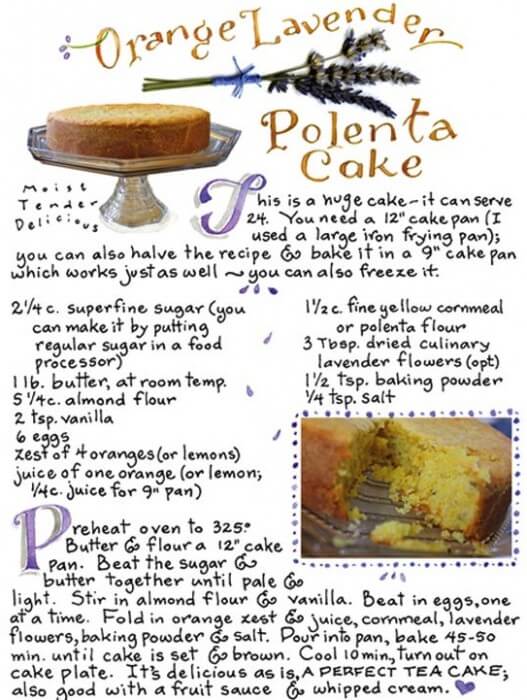 Orange Lavender
Polenta
Cake
Moist
Tender
Delicious
This is a huge cake - it can serve
24. You need a 12" cake pan (I
used a large iron frying pan);
you can also halve the recipe & bake it in a 9" cake pan
which works just as well ~ you can also freeze it.
2 1/4 c. superfine sugar (you
can make it by putting
regular sugar in a food
processor)
1 lb. butter, at room temp.
5 1/4 c. almond flour
2 tsp. vanilla
6 eggs
zest of 4 oranges (or lemons)
juice of one orange (or lemon;
1/4 c. juice for 9" pan)
1 1/2 c. fine yellow cornmeal
or polenta flour
3 Tbsp. dried culinary
lavender flowers (opt)
1 1/2 tsp. baking powder
1/4 tsp. salt
Preheat oven to 325°
Butter & flour a 12" cake
pan. Beat the sugar &
butter together until pale &
light. Stir in almond flour & vanilla. Beat in eggs, one
at a time. Fold in orange zest & juice, cornmeal, lavender
flowers, baking powder & salt. Pour into pan, bake 45-50
min. until cake is set & brown. Cool 10 min, turn out on
cake plate. It's delicious as is, A PERFECT TEA CAKE;
also good with a fruit sauce & whipped cream.